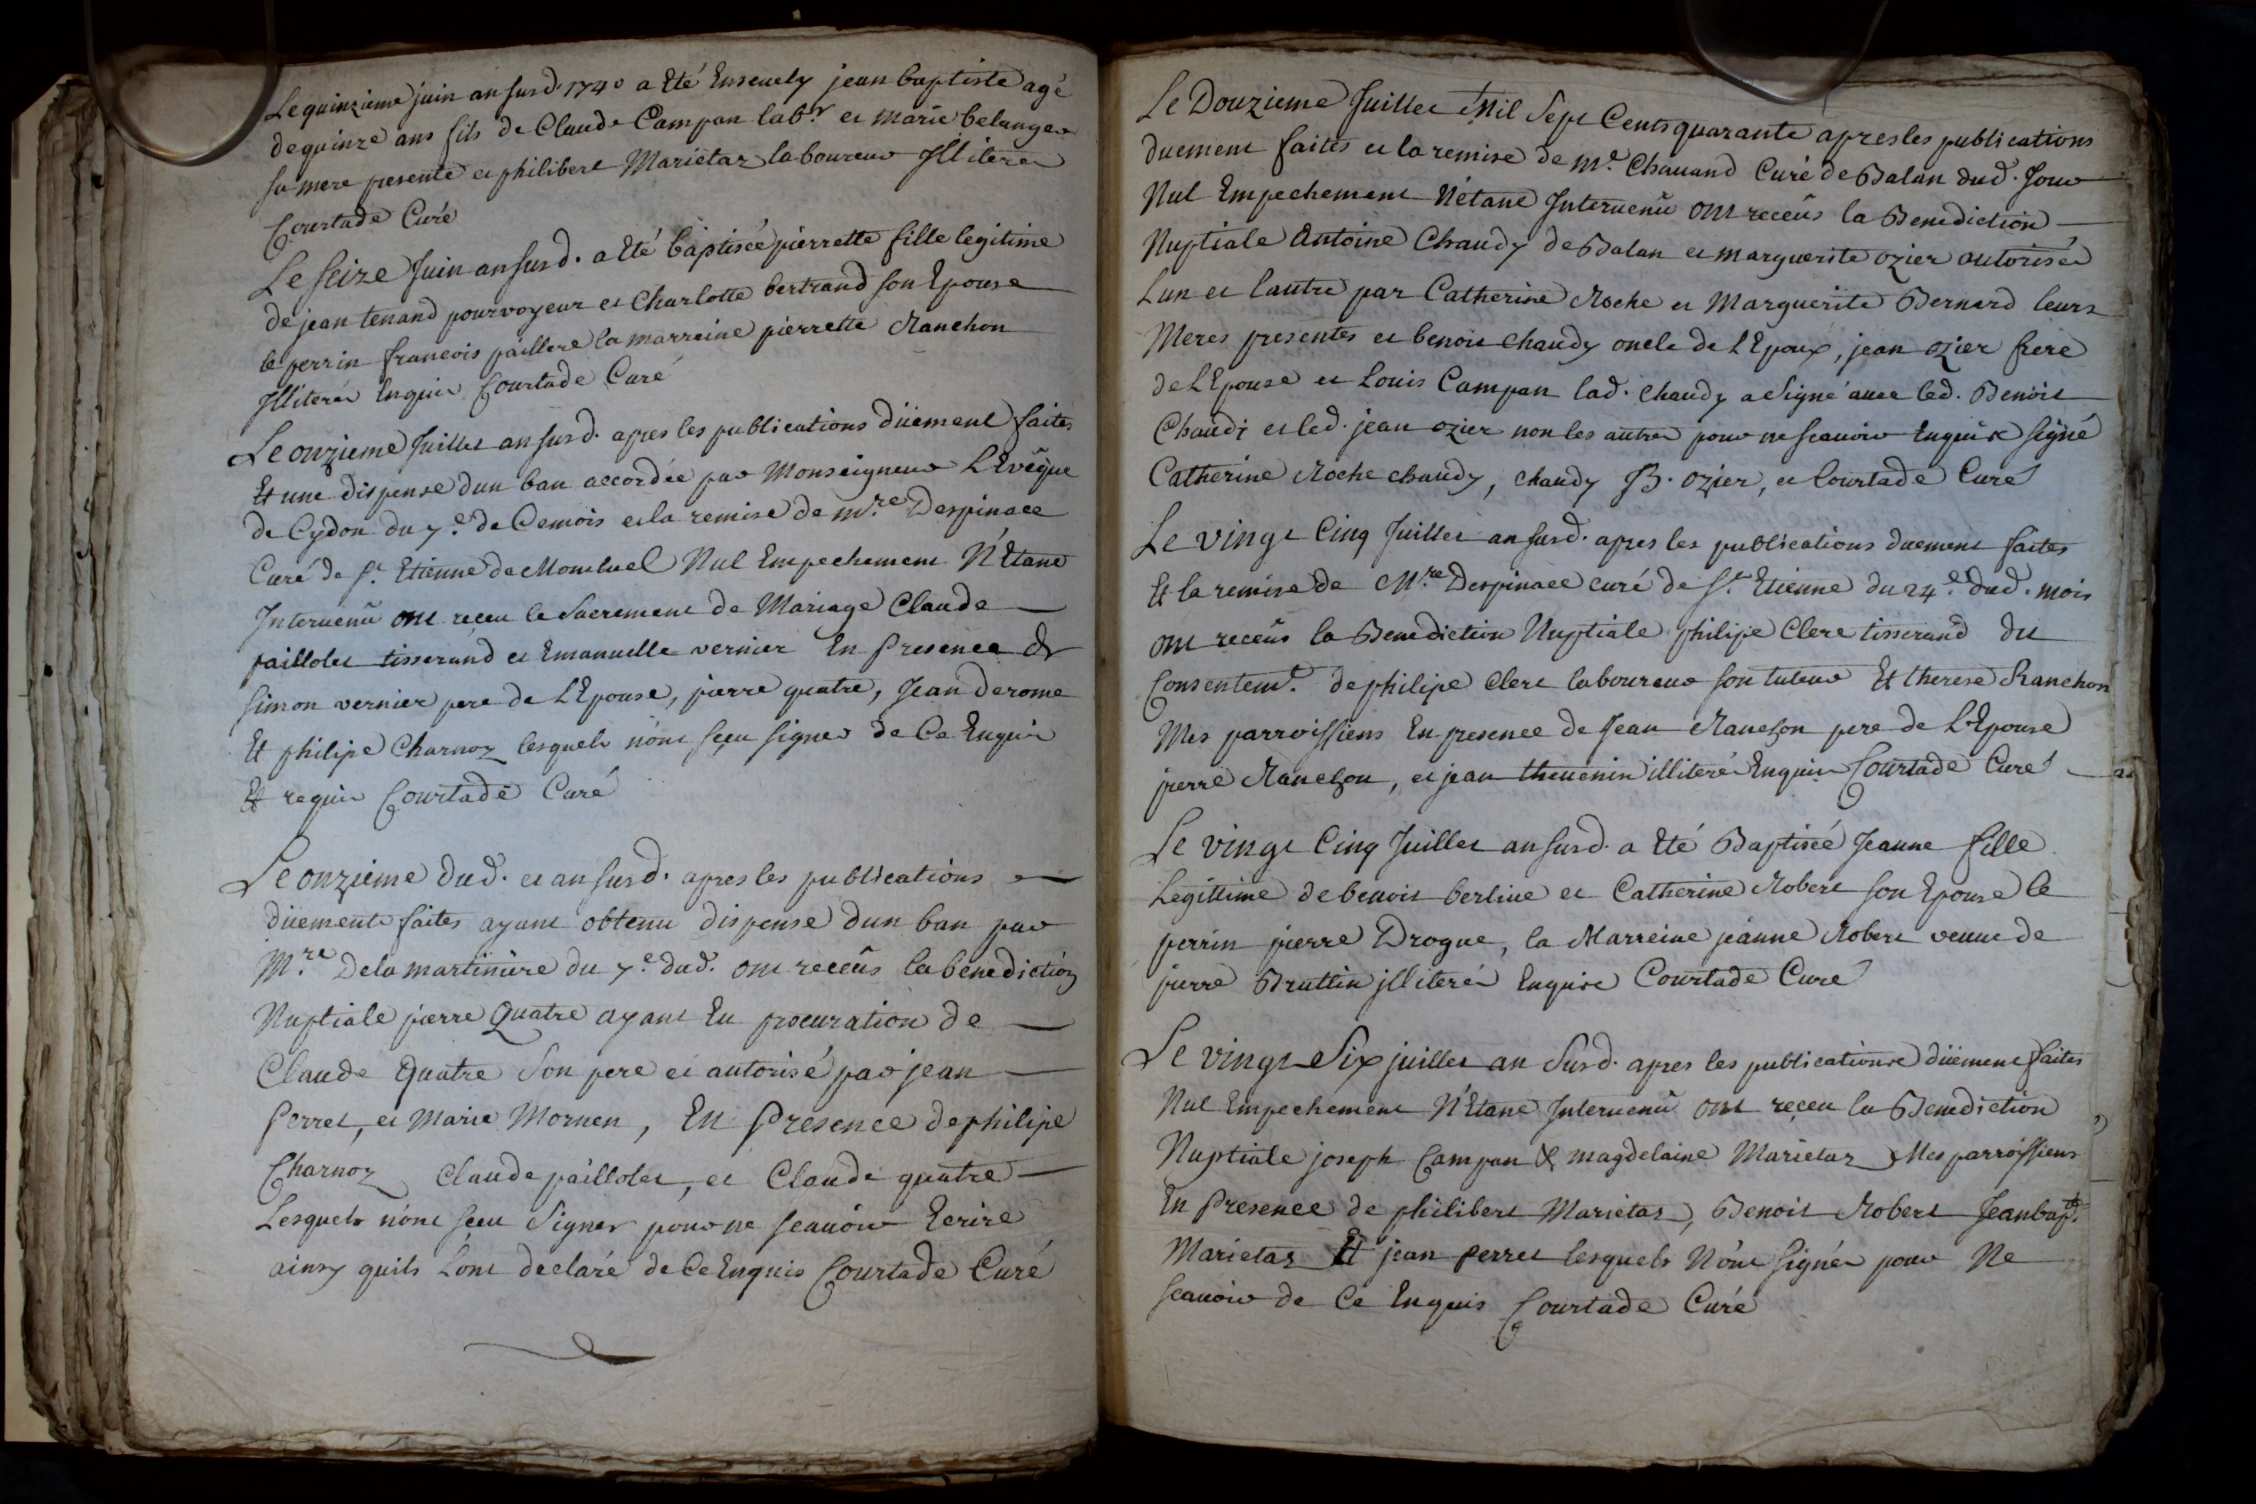 Le quinzieme juin an susd. 1740 a Eté Enseuely jean baptiste agé
de quinze ans fils de Claude Campan lab.r et marie belanger
sa mere presente et philibert Marietaz laboureur Illiteréz
Courtade Curé
Le seize Juin an susd. a Eté baptisée pierrette fille legitime
de jean tenand pourvoyeur et Charlotte bertrand son Epouse
le perrin francois paillere la marreine pierrette Ranchon
Illiteréz Enquis Courtade Curé
Le onzieme Juillet an susd. apres les publications düement faites
Et une dispense dun ban accordée par Monseigneur L'Evêque
de Cydon du 7.e de Cemois et la remise de m.re Despinace
Curé de s.t Etienne de Montluel Nul Empechement N'Etant
Interuenû ont receu le Sacrement de Mariage Claude
paillolet tisserand et Emanuelle vernier En Presence de
simon vernier pere de L'Epouse, pierre quatre, Jean derome
Et philipe Charnoz lesquels n'ont sçeu signer de Ce Enquis
Et requis Courtade Curé
Le onzieme dud. et an susd. apres les publications
düement faites ayant obtenu dispense dun ban par
M.re Delamartinière du 7.e dud. ont receûs la benediction
Nuptiale pierre Quatre ayant Eu procuration de
Claude Quatre Son pere et autorisé par jean
Perret, et Marie Mornen, En Presence de philipe
Charnoz Claude paillolet, et Claude quatre
Lesquels n'ont sçeu Signer pour ne sçauoir Ecrire
ainsy quils L'ont declaré de Ce Enquis Courtade Curé
Le Douzieme Juillet Mil Sept Cents quarante apres les publications
duement faites et la remise de M.e Chauand Curé de Balan dud. Jour
Nul Empechement N'étant Interuenû ont receûs la Benediction
Nuptiale Antoine Chaudy de Balan et marguerite ozier autorisés
Lun et lautre par Catherine Roche et Marguerite Bernard leurs
Meres presentes et benoit chaudy oncle de L'Epoux, jean ozier frere
de L'Epouse et Louis Campan lad. chaudy a Signé auec led. Benoit
Chaudi et led. jean ozier non les autres pour ne sçauoir Enquis signé
Catherine Roche chaudy, chaudy J B. ozier, et Courtade Curé
Le vingt Cinq Juillet an susd. apres les publications duement faites
Et la remise de M.re Despinace curé de s.t Etienne du 24.e dud. mois
ont receûs la Benediction Nuptiale philipe Clere tisserand du
Consentem.t de philipe Clere laboureur son tuteur Et therese Ranchon
Mes parroissiens En presence de Jean Ranchon pere de L'Epouse
pierre Ranchon, et jean theuenin illiteréz Enquis Courtade Curé
Le vingt Cinq Juillet an susd. a Eté Baptisée Jeanne fille
Legittime de benoit berline et Catherine Robert son Epouse le
perrin pierre Drogue, la Marreine jeanne Robert veuue de
pierre Bruttin illiteréz Enquise Courtade Curé
Le vingt Six juillet an Susd. apres les publications düement faites
Nul Empechement N'Etant Interuenû ont reçeu la Benediction
Nuptiale joseph Campan & magdelaine Marietaz Mes parroissiens
En Presence de philibert Marietaz, Benoit Robert Jeanbap.te
Marietaz Et jean Perret lesquels N'ont signéz pour Ne
sçauoir de Ce Enquis Courtade Curé